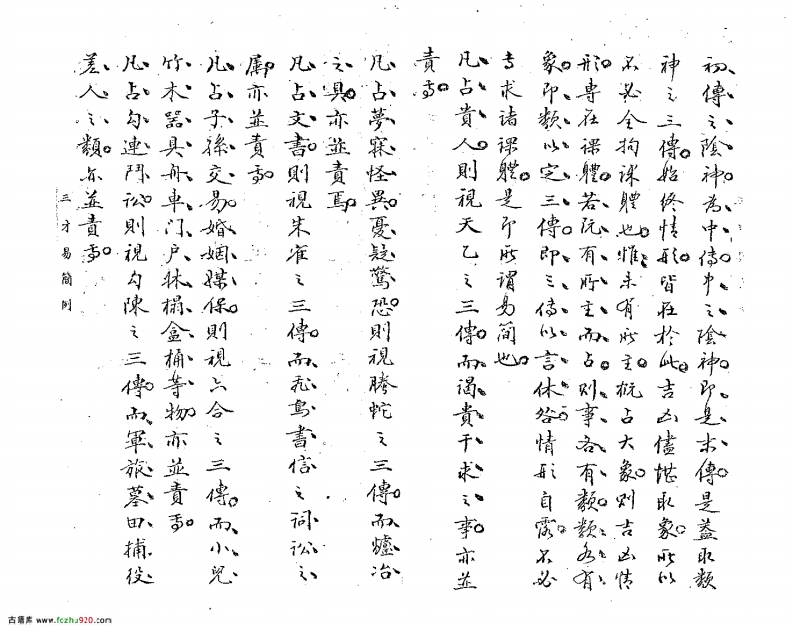 初傳之陰神為中傳中之陰神即是末傳是蓋取類
神之三傳始終情形皆在於此吉凶儘堪取象所以
不必全拘課體也惟未有所主概占大象則吉凶情
形專在課體若既有所主而占則事各有類類各有
象即類以定三傳即三傳以言休咎情形自露不必
專求諸課體是即所謂易簡也
凡占貴人則視天乙之三傳而謁貴干求之事亦並
責焉
凡占夢寐怪異憂疑驚恐則視螣蛇之三傳而爐冶
之具亦並責焉
凡占文書則視朱雀之三傳而飛鳥書信之詞訟之
屬亦並責焉
凡占子孫交易婚姻媒保則視六合之三傳而小兒
竹木器具舟車門戶牀榻盒桶等物亦並責焉
凡占勾連鬥訟則視勾陳之三傳而軍旅墓田捕役
差人之類亦並責焉
三才易簡例
古籍库 www.fczhu920.com